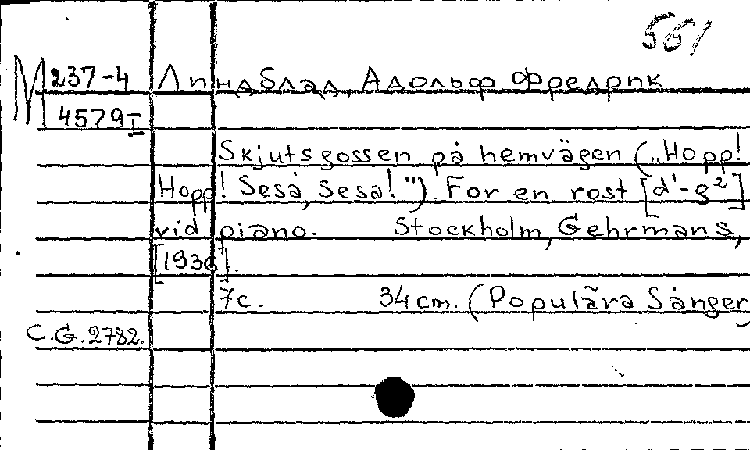 551
М 237-4 Линдблад, Адольф Фредрик
4579 I
Skjutsgossen på hemvägen („Hopp!
Hopp! Seså, Seså!"). For en rost [d'-g²]
vid piano. Stockholm, Gehrmans,
[1936].
7c. 34cm. (Populāra Sånger)
C.G.2782.